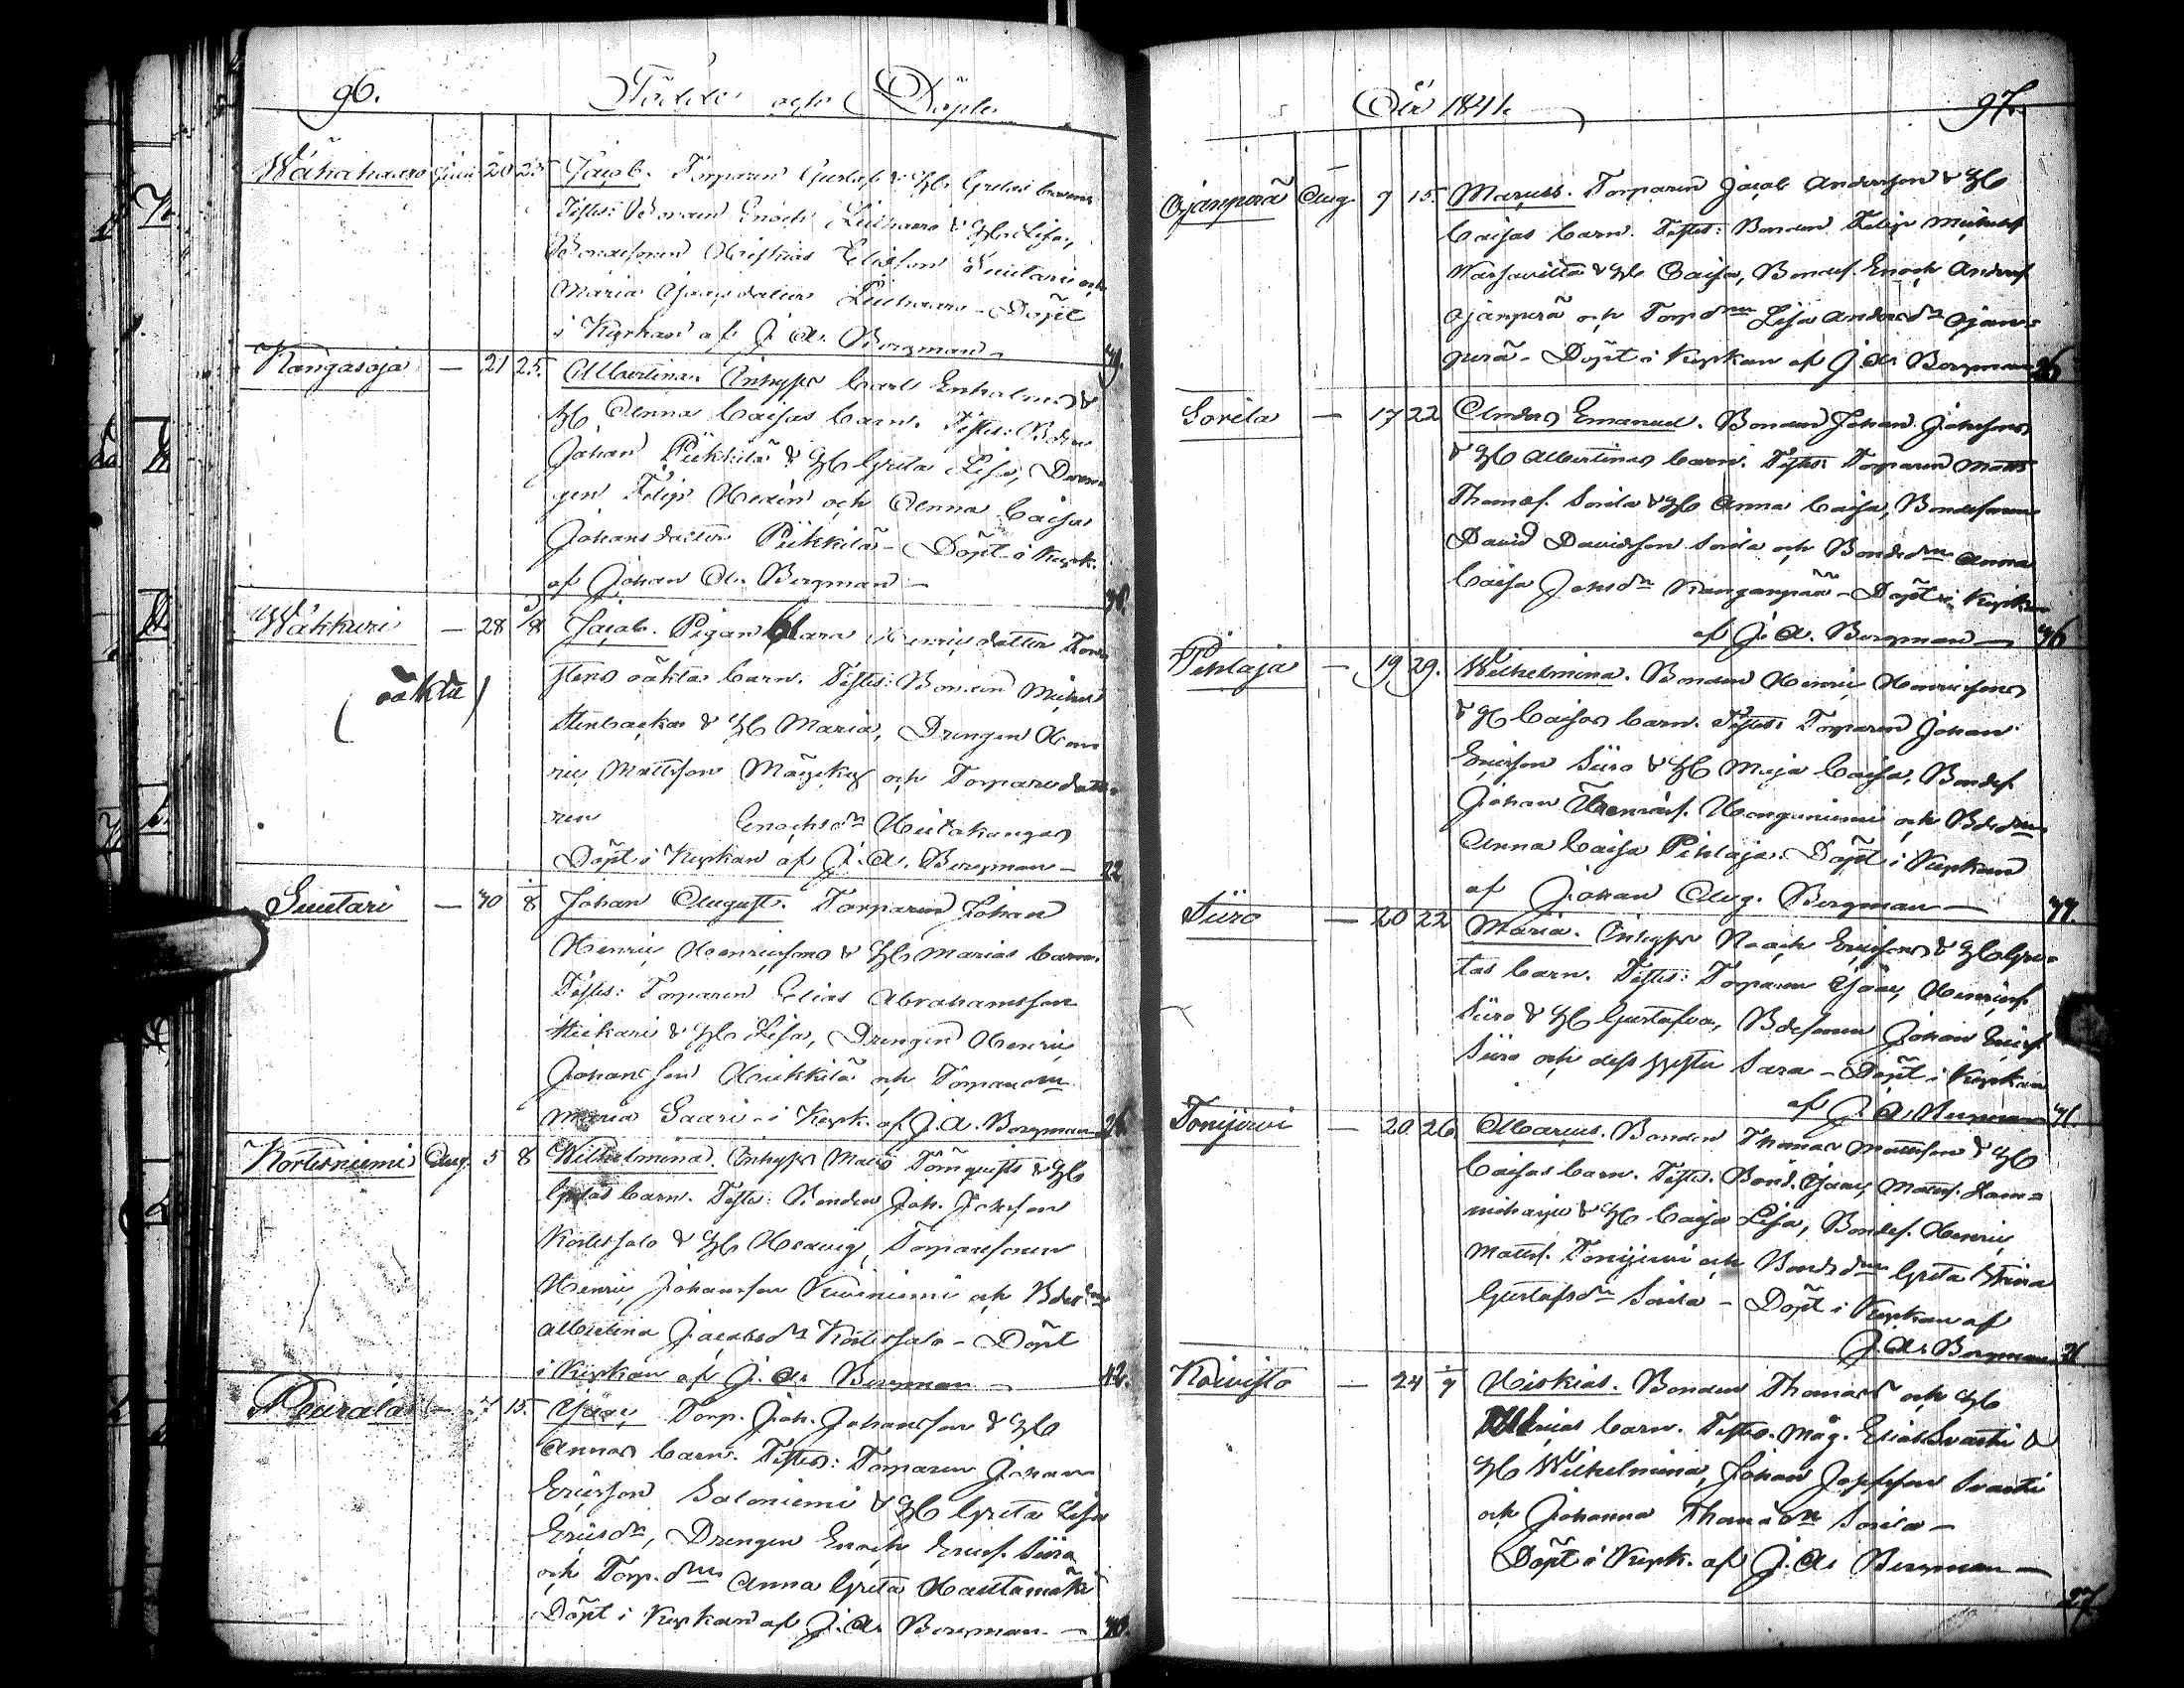 96. Födde och Döpte
Wähähaaro Julii 20 25 Jacob. Torparen Gustaf & H. Gretas barn.
Testes: Bonden Enoch Liuhaaro & H. Lisa,
Bondesonen Hiskias Eliasson Suutari och
Maria Isaacsdotter Liuhaaro - Döpt
i Kyrkan af J. A. Bergman -
Kangasoja — 21 25. Albertina. Inhyses Carl Enholms &
H. Anna Caisas barn. Testes: Bden
Johan Pükkilä & H. Greta Lisa, Dren-
gen Filip Hedin och Anna Caisa
Johansdotter Pükkilä - Döpt i Kyrk.
af Johan A. Bergman -
Wäkkuri — 28 1/8 Jacob. Pigan Clara Henricsdotter
oäkta barn. Testes: Bonden Michel
(oäkta)
Stenbacka & H. Maria, Drengen Hen-
ric Mattsson och Torparedotte-
ren Enochsdr Hietakangas
Döpt i Kyrkan af J. A. Bergman - 22
Suutari — 30 1/8 Johan August. Torparen Johan
Henric Henricssons & H. Marias barn.
Testes: Torparen Elias Abrahamsson
& H. Lisa, Drengen Henric
Johansson och Torparedrn
Maria Saari - i Kyrk. af J. A. Bergman 26
Kortesniemi Aug. 5 8 Wilhelmina. Inhyses Matts Törnqvists & H.
Gretas barn. Testes: Bonden Joh. Johsson
Kortessalo & H. Hedvig, Torparesonen
Henric Johansson Kiviniemi och Bdedrn
Albertina Jacobsdr Kortessalo - Döpt
i Kyrkan af J. A. Bergman - 42.
Peurala — 7 15. Isaac Torp. Joh. Johansson & H.
Annas barn. Testes: Torparen Johan
Ericsson Saloniemi & H. Greta Lisa
Ericsdr, Drengen Enoch Ericss. Siiro
och Torp.drn Anna Greta Hautamäki
Döpt i Kyrkan af J. A. Bergman - 40.
År 1841. 97.
Ojanperä Aug. 9 15. Marcus. Torparen Jacob Andersson & H.
Caisas barn. Testes: Bonden Filip Michelss
& H. Caisa, Bondes. Enoch Anderss
Ojanperä och Torpdrn Lisa Andersdr Ojan-
perä - Döpt i Kyrkan af J. A. Bergman 36
Sorila — 17 22 Anders Emanuel. Bonden Johan Johnssons
& H. Albertinas barn. Testes: Torparen Matts
Thomass. Sorila & H. Anna Caisa, Bondesonen
David Davidsson Sorila och Bondedrn Anna
Caisa Johsdr Kanganpää - Döpt i Kyrkan
af J. A. Bergman - 36
Pihlaja — 19 29. Wilhelmina. Bonden Henric Henricssons
& H. Caisas barn. Testes: Torparen Johan
Ericsson Siiro & H. Maja Caisa, Bondes.
Johan Henricss. Kanganiemi och Bdedrn
Anna Caisa Pihlaja. Döpt i Kyrkan
af Johan Aug. Bergman -
Siiro — 20 22 Maria. Inhyses Noach Ericssons & H. Gre-
tas barn. Testes: Torparen Isaac Henricss.
Siiro & H. Gustafva, Bdesonen Johan Ericss
Siiro och dess syster Sara - Döpt i Kyrkan
af J. A. Bergman
Tonijervi — 20 26. Marcus. Bonden Thomas Mattsson & H.
Caisas barn. Testes. Bond. Isaac Mattss. Lam-
miharju & H. Caisa Lisa, Bondes. Henric
Mattss. Tonijervi och Bondedrn Greta Stina
Gustafsdr Sorila - Döpt i Kyrkan af
J. A. Bergman
Koivisto — 24 1/9 Hiskias. Bonden Thomas och H.
Marias barn. Testes. Måg. Elias Svarti &
H. Wilhelmina, Johan Josefsson Svarti
och Johanna Thomasdr Sorila -
Döpt i Kyrk. af J. A. Bergman -
27.